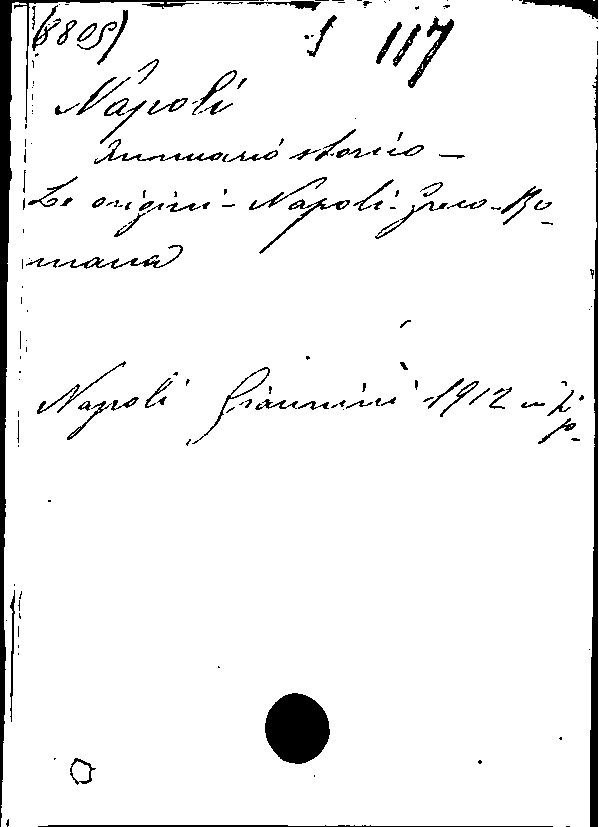 (8805) S 117
Napoli
Annuario storico -
Le origini - Napoli - Greco - Ro-
mana
Napoli Giannini 1912 in
p.